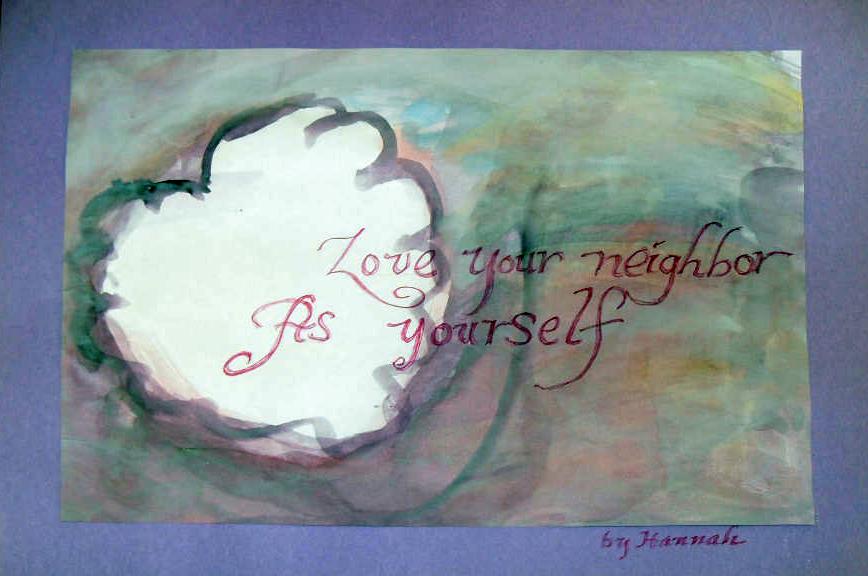 Love your neighbor
As yourself
by Hannah